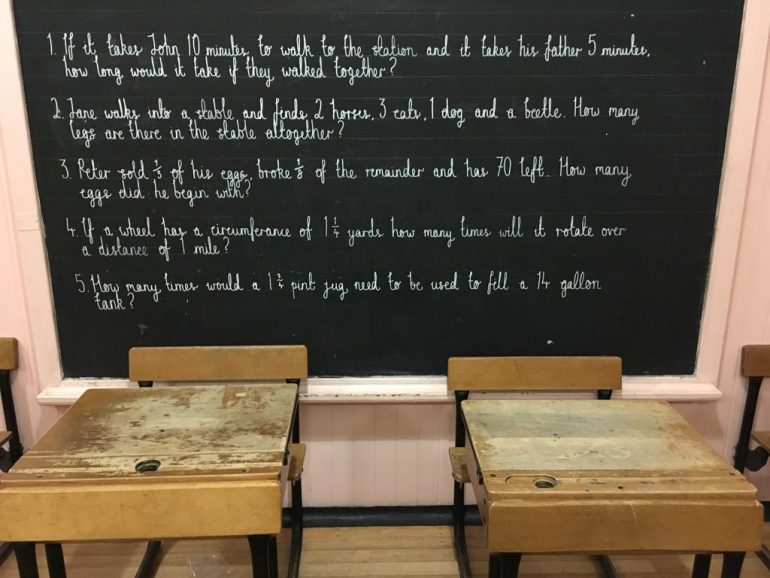 1. If it takes John 10 minutes to walk to the station and it takes his father 5 minutes,
how long would it take if they walked together?
2. Jane walks into a stable and finds 2 horses, 3 cats, 1 dog and a beetle. How many
legs are there in the stable altogether?
3. Peter sold 1/5 of his eggs, broke 1/8 of the remainder and has 70 left. How many
eggs did he begin with?
4. If a wheel has a circumferance of 1 1/4 yards how many times will it rotate over
a distance of 1 mile?
5. How many times would a 1 3/4 pint jug need to be used to fill a 14 gallon
tank?